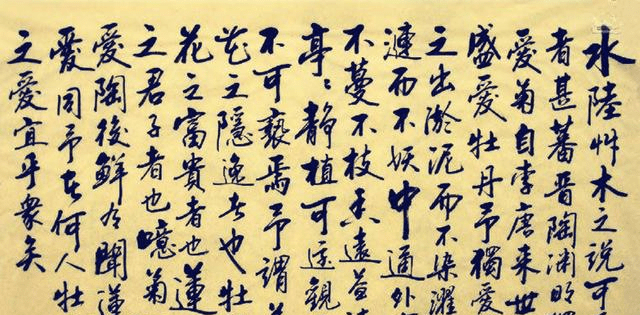 水陸艸木之説可
者甚蕃晋陶渊明
愛菊自李唐来世
盛愛牡丹予獨愛
之出淤泥而不染濯
漣而不妖中通外
不蔓不枝香遠益
亭〻静植可遠觀
不可褻焉予謂
花之隱逸者也牡
花之富貴者也蓮
之君子者也噫菊
愛陶後鮮有聞蓮
愛同予者何人牡
之愛宜乎衆矣